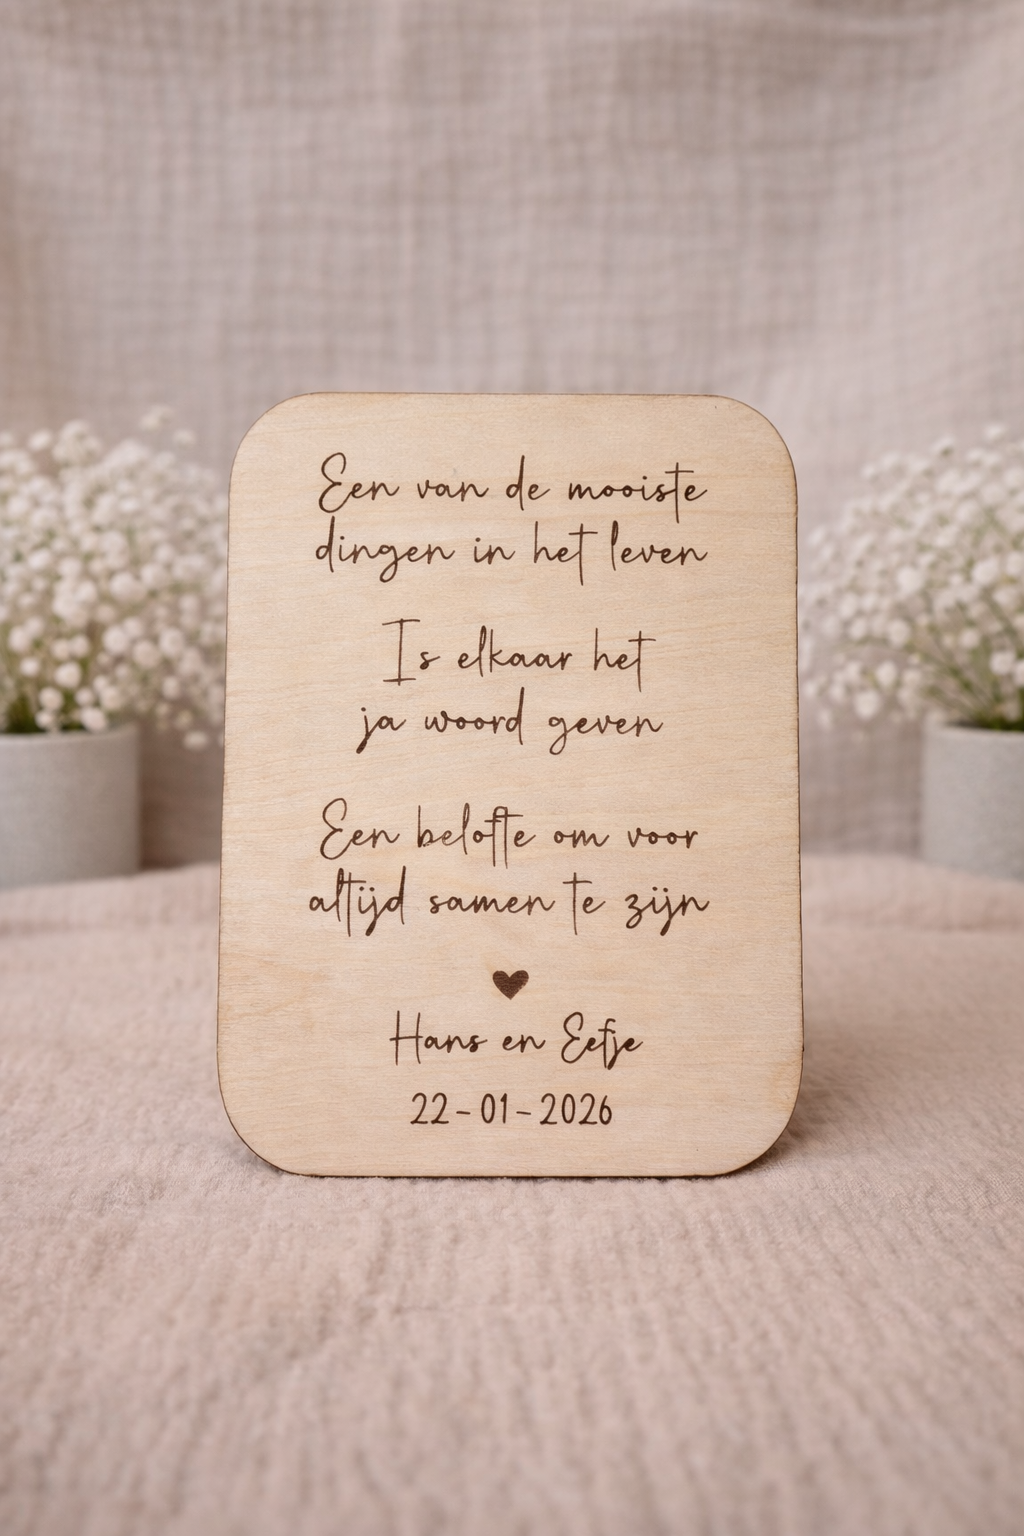 Een van de mooiste
dingen in het leven
Is elkaar het
ja woord geven
Een belofte om voor
altijd samen te zijn
Hans en Eefje
22-01-2026